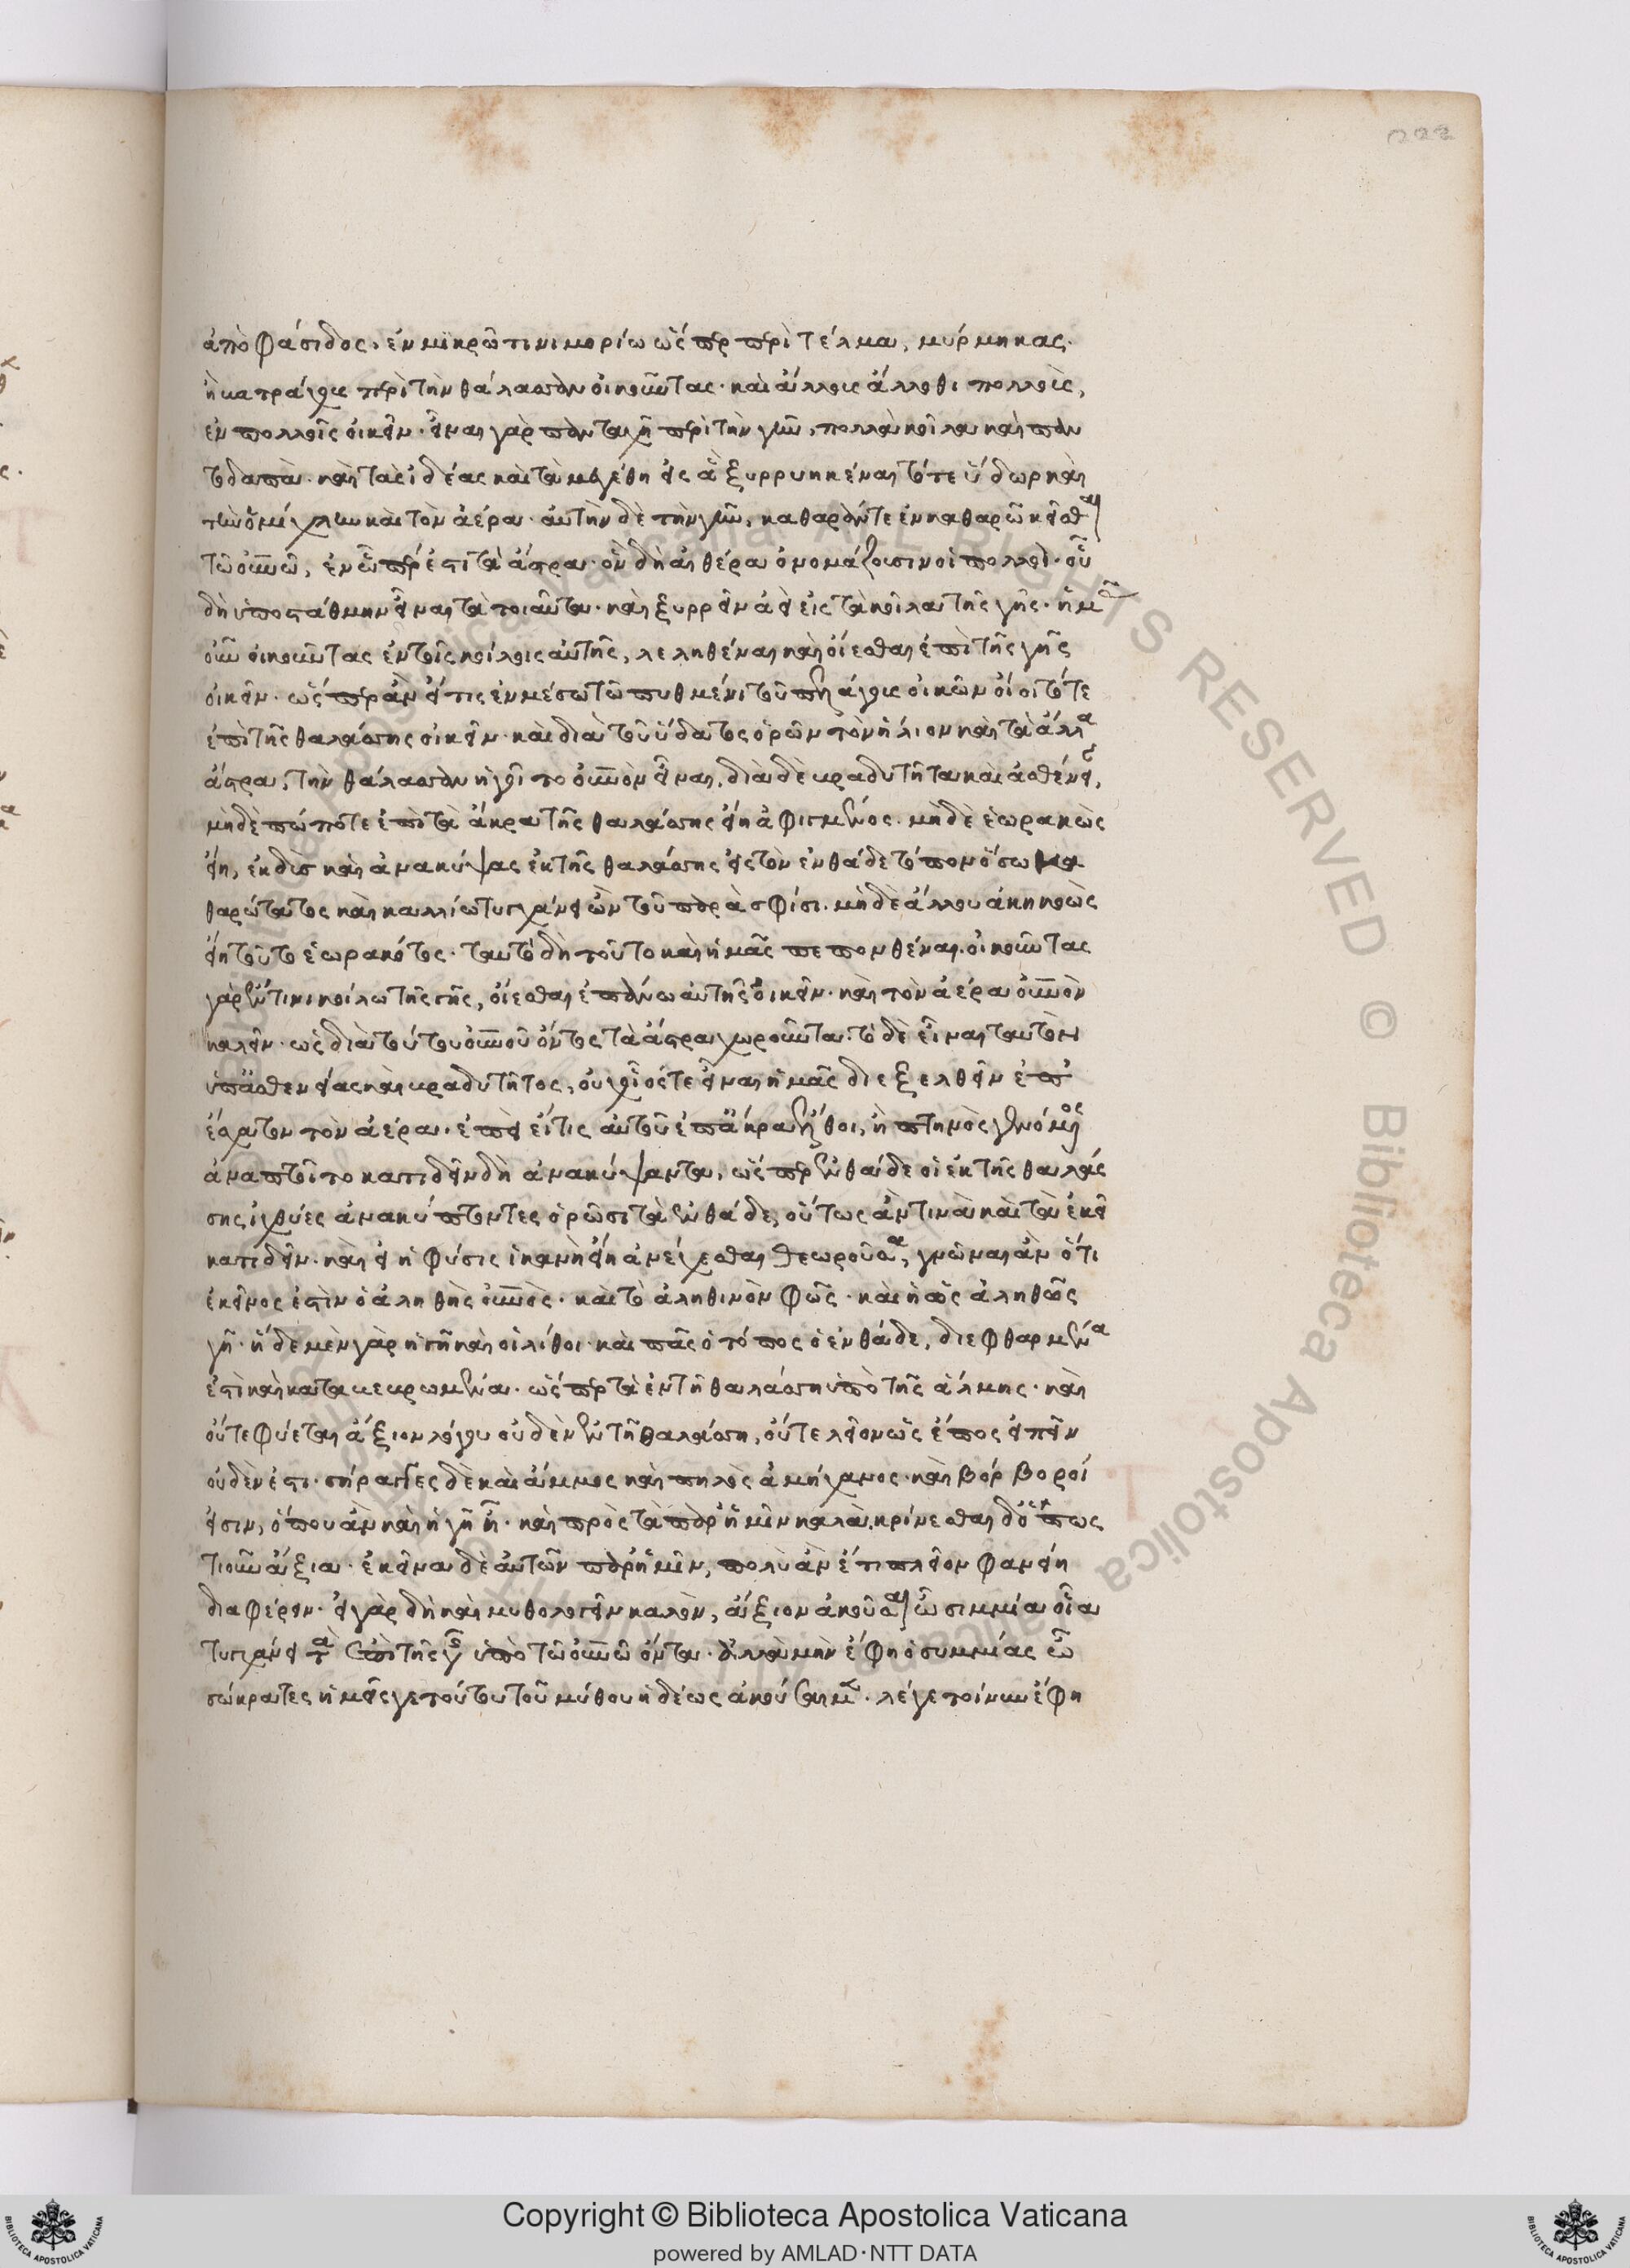 222
ἀπὸ φάσιδος. ἐν μικρῶ τινι μορίω ὥσπερ περὶ τέλμα, μύρμηκας.
ἢ βατράχους περὶ τὴν θάλασσαν οἰκοῦντας. καὶ ἄλλους ἄλλοθι πολλοὺς,
ἐν πολλοῖς οἰκεῖν. εἶναι γὰρ πανταχῆ περὶ τὴν γῆν, πολλὰ κοῖλα καὶ παν
τοδαπὰ. καὶ τὰς ἰδέας καὶ τὰ μεγέθη εἰς ἃ ξυρρυηκέναι τό τε ὕδωρ καὶ
τὴν ὁμίχλην καὶ τὸν ἀέρα. αὐτὴν δὲ τὴν γῆν, καθαρὰν τε ἐν καθαρῶ κεῖσθαι
τῶ οὐνῶ, ἐν ὧπερ ἐστὶ τὰ ἄστρα. ὃν δὴ αἰθέρα ὀνομάζουσιν οἱ πολλοὶ. οὗ
δὴ ὑποστάθμην εἶναι τὰ τοιαῦτα. καὶ ξυρρεῖν ἀεὶ εἰς τὰ κοῖλα τῆς γῆς. ἡμᾶς
οὖν οἰκοῦντας ἐν τοῖς κοίλοις αὐτῆς, λεληθέναι καὶ οἴεσθαι ἐπὶ τῆς γῆς
οἰκεῖν. ὥσπερ ἂν εἴ τις ἐν μέσω τῶ πυθμένι τοῦ πελάγους οἰκῶν οἴοιτό τε
ἐπὶ τῆς θαλάσσης οἰκεῖν. καὶ διὰ τοῦ ὕδατος ὁρῶν τὸν ἥλιον καὶ τὰ ἄλλα
ἄστρα, τὴν θάλασσαν ἡγοῖτο οὐνὸν εἶναι, διὰ δὲ βραδυτῆτα καὶ ἀσθένειαν,
μὴδὲ πώποτε ἐπὶ τὰ ἄκρα τῆς θαλάσσης εἴη ἀφιγμένος. μὴδὲ ἑωρακὼς
εἴη, ἐκδὺς καὶ ἀνακύψας ἐκ τῆς θαλάσσης εἰς τὸν ἐνθάδε τόπον ὅσω κα
θαρώτατος καὶ καλλίω τυγχάνει ὢν τοῦ παρὰ σφίσι. μὴδὲ ἄλλου ἀκηκοὼς
εἴη τοῦ τὸ ἑωρακότος. ταὐτὸ δὴ τοῦτο καὶ ἡμᾶς πεπονθέναι. οἰκοῦντας
γὰρ ἔν τινι κοίλω τῆς γῆς, οἴεσθαι ἐπάνω αὐτῆς οἰκεῖν. καὶ τὸν ἀέρα οὐνὸν
καλεῖν. ὡς διὰ τούτου οὐνοῦ ὄντος τὰ ἄστρα χωροῦντα. τὸ δὲ εἶναι ταὐτὸν
ὑπ' ἀσθενείας καὶ βραδυτῆτος, οὐχ οἷός τε εἶναι ἡμᾶς διεξελθεῖν ἐπ'
ἔσχατον τὸν ἀέρα. ἐπεὶ εἴ τις αὐτοῦ ἐπ' ἄκρα ἔλθοι, ἢ πτηνὸς γενόμενος
ἀναπτοῖτο κατιδεῖν δὴ ἀνακύψαντα, ὥσπερ ἐνθάδε οἱ ἐκ τῆς θαλάσ
σης ἰχθύες ἀνακύπτοντες ὁρῶσι τὰ ἐνθάδε, οὕτως ἄν τινα καὶ τὰ ἐκεῖ
κατιδεῖν. καὶ εἰ ἡ φύσις ἱκανὴ εἴη ἀνείχεσθαι θεωροῦσα, γνῶναι ἂν ὅτι
ἐκεῖνος ἐστὶν ὁ ἀληθὴς οὐνὸς. καὶ τὸ ἀληθινὸν φῶς. καὶ ἡ ὡς ἀληθῶς
γῆ. ἥδε μὲν γὰρ ἡ γῆ καὶ οἱ λίθοι. καὶ πᾶς ὁ τόπος ὁ ἐνθάδε, διεφθαρμένα
ἐστὶ καὶ καταβεβρωμένα. ὥσπερ τὰ ἐν τῆ θαλάσση ὑπὸ τῆς ἅλμης. καὶ
οὔτε φύεται ἄξιον λόγου οὐδὲν ἐν τῆ θαλάσση, οὔτε λεῖον ὡς ἔπος εἰπεῖν
οὐδὲν ἐστι. σήραγγες δὲ καὶ ἄμμος καὶ πηλὸς ἀμήχανος. καὶ βόρβοροί
εἰσιν, ὅπου ἂν καὶ ἡ γῆ ἦ. καὶ πρὸς τὰ παρ' ἡμῖν καλὰ κρίνεσθαι οὐδ' ὅπως
τιοῦν ἄξια. ἐκεῖνα δὲ αὐτῶν παρ' ἡμῖν, πολὺ ἂν ἔτι πλεῖον φανείη
διαφέρειν. εἰ γὰρ δὴ καὶ μυθολογεῖν καλὸν, ἄξιον ἀκοῦσαι ὦ σιμμία οἷα
τυγχάνει τὰ ἐπὶ τῆς γῆς ὑπὸ τῶ οὐνῶ ὄντα. ἀλλὰ μὴν ἔφη ὁ σιμμίας ὦ
σώκρατες ἡμεῖς γε τούτου τοῦ μύθου ἡδέως ἀκούσαιμεν. λέγε τοίνυν ἔφη
Copyright © Biblioteca Apostolica Vaticana
powered by AMLAD·NTT DATA